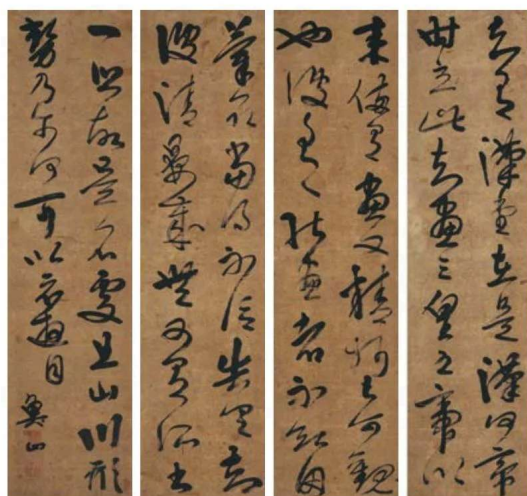 知有漢堂在是漢何帝
時立此知畫三皇五帝以
来備有畫又精妙甚可觀
也彼有能畫者不欲因
摹取當可不信具告
彼清晏歲豐又有所出
一鄉故是名處且山川形
勢乃尔何可以不遊目